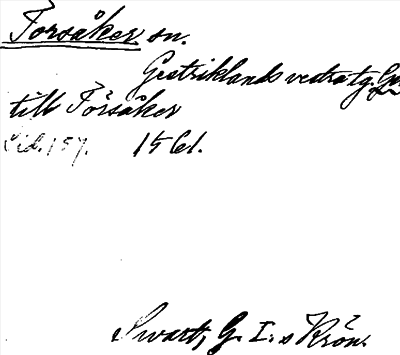 Torsåker sn.
Gestriklands vestra tg.
till Torsåker
Sid. 157. 1561.
Swart, G. I:s Krön.